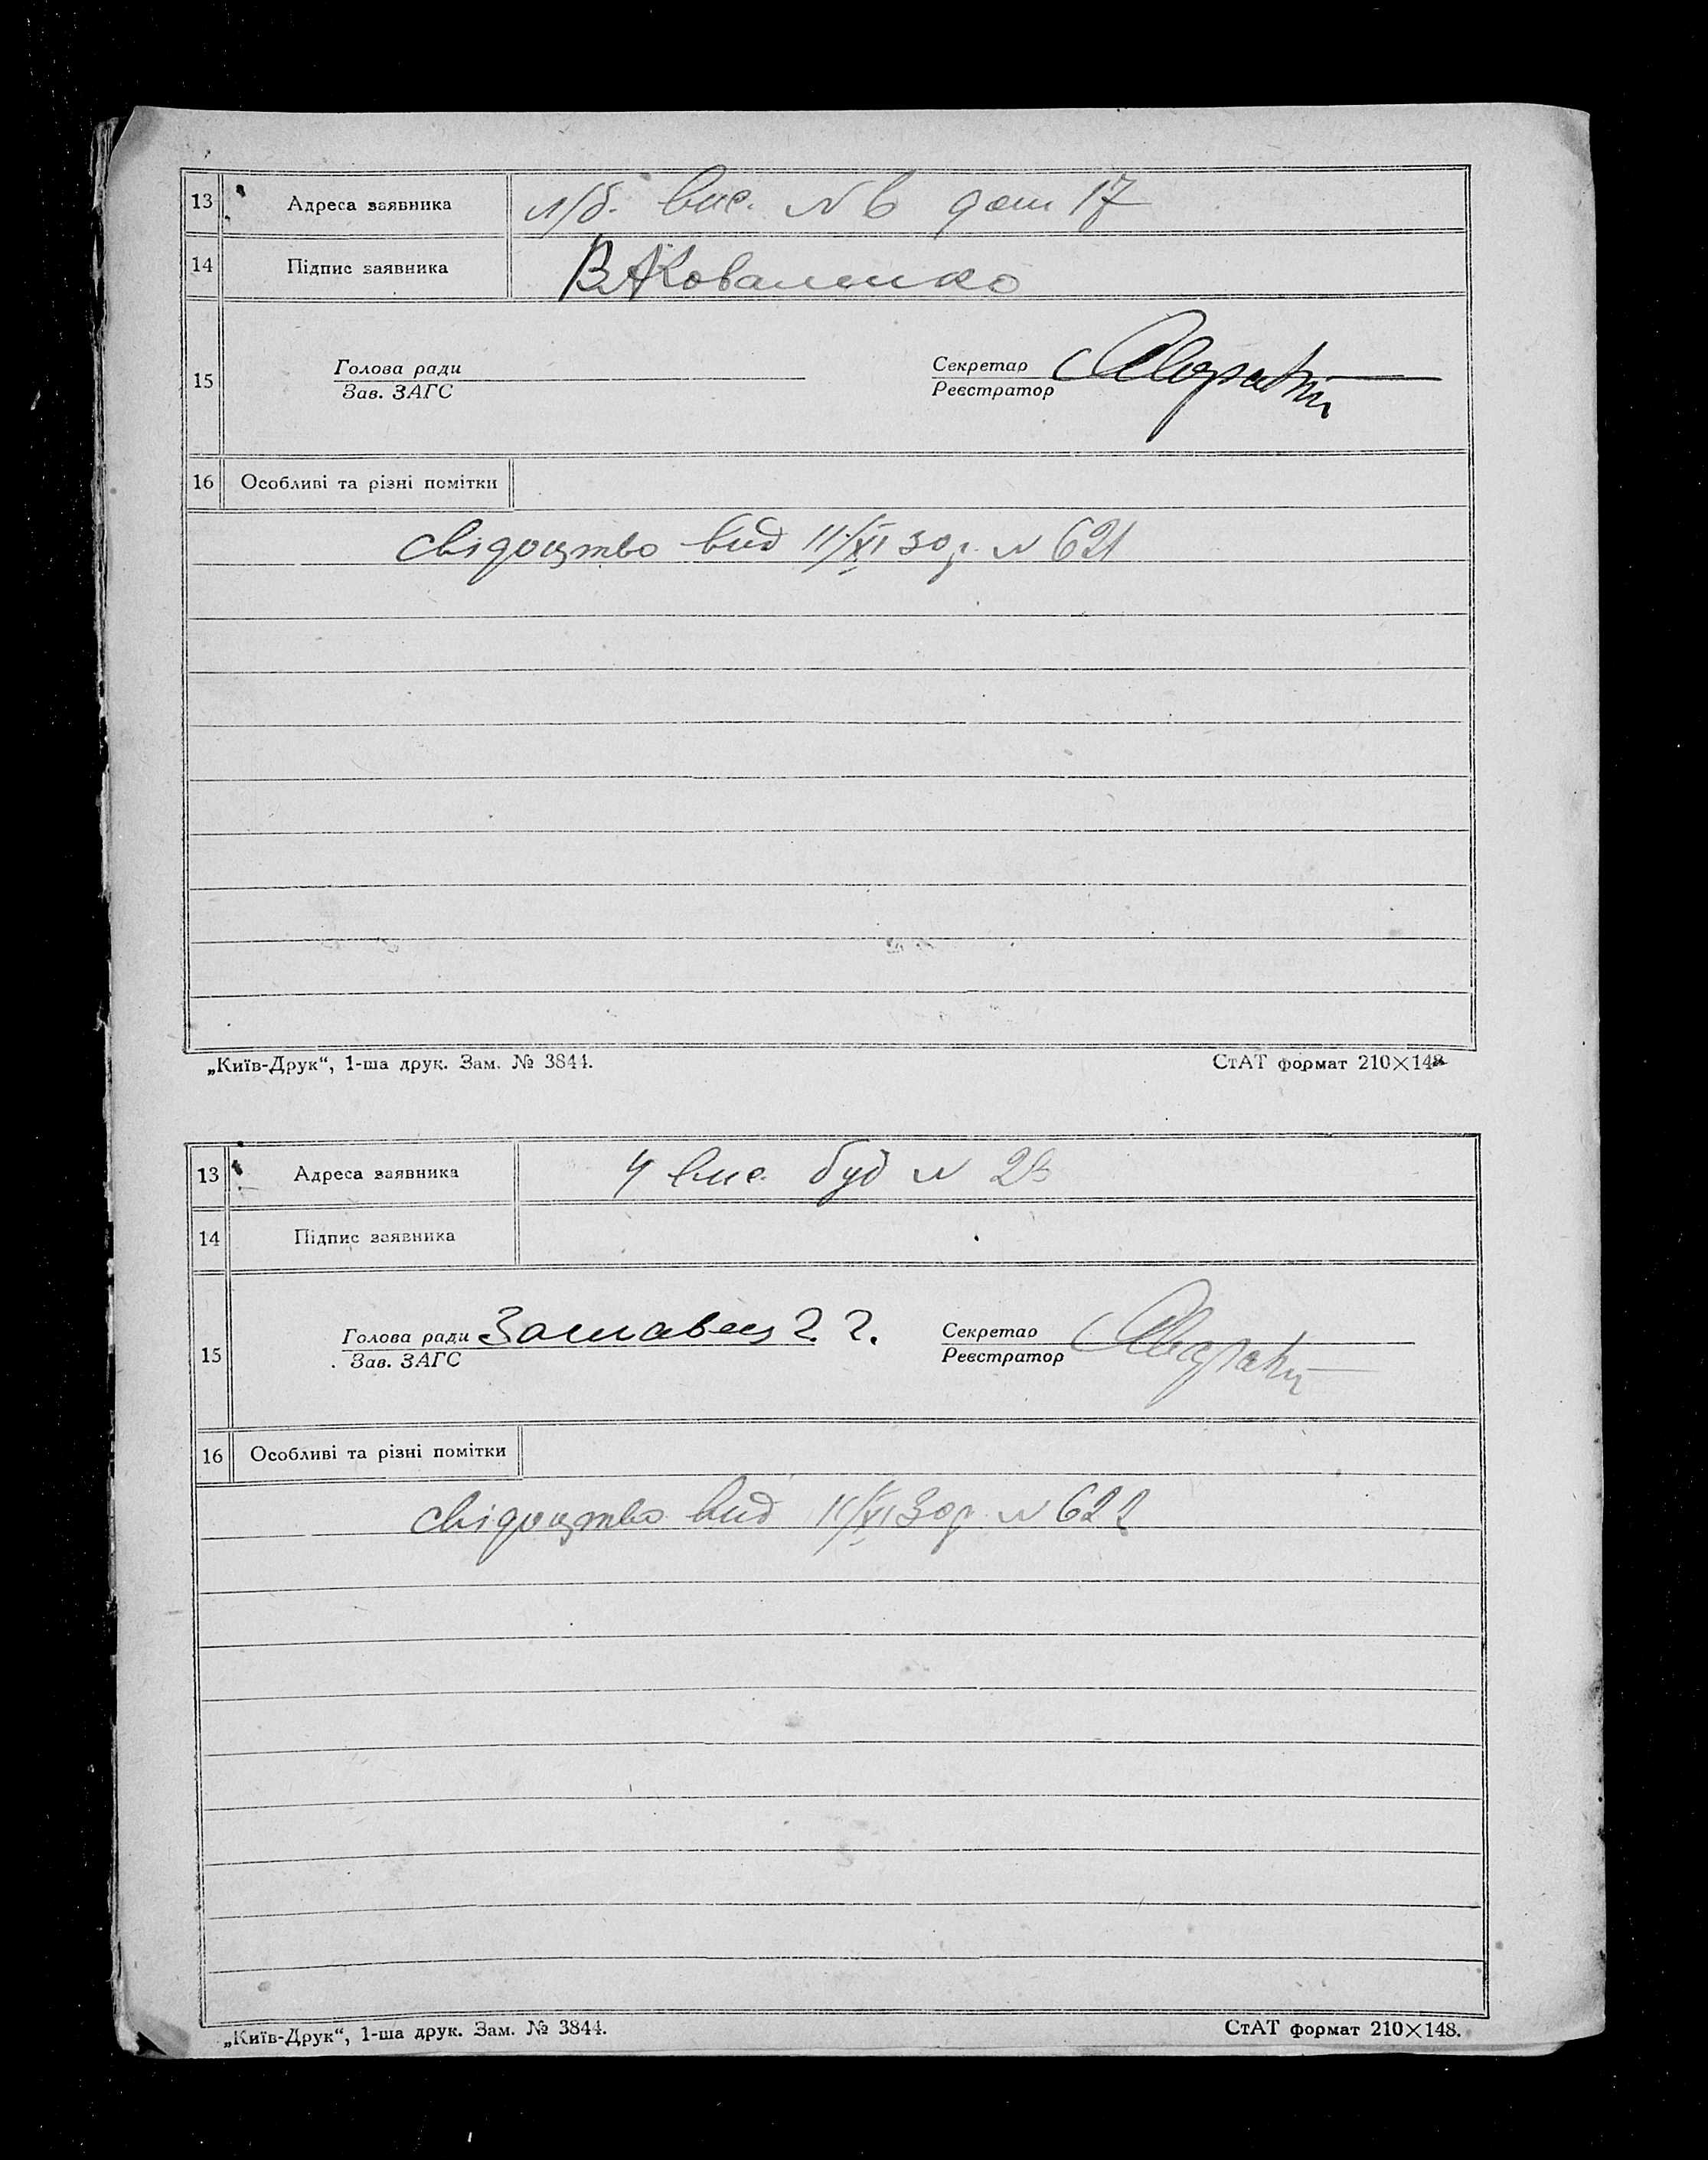 13 Адреса заявника л/б. вис. № 6 дом 17
14 Підпис заявника ВАКоваленко
15 Голова ради Секретар
Зав. ЗАГС Реєстратор
16 Особливі та різні помітки
свідоцтво вид 11/XI 30 р. № 621
„Київ-Друк“, 1-ша друк. Зам. № 3844. СтАТ формат 210×148
13 Адреса заявника 4 вис. буд №
14 Підпис заявника
15 Голова ради Секретар
Зав. ЗАГС Реєстратор
16 Особливі та різні помітки
свідоцтво вид 11/XI 30 р. № 622
„Київ-Друк“, 1-ша друк. Зам. № 3844. СтАТ формат 210×148.